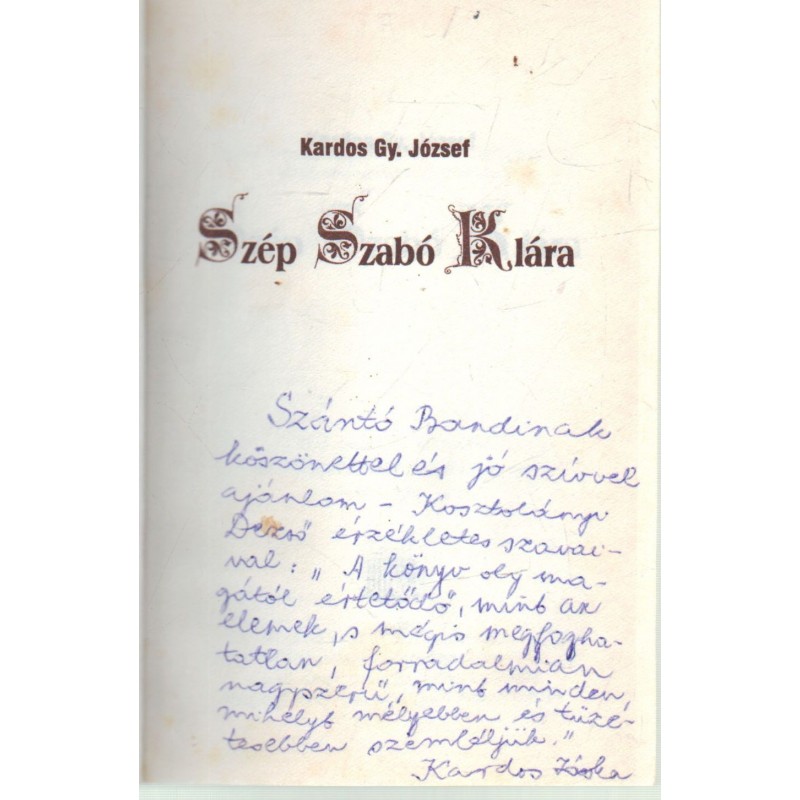 Kardos Gy. József
Szép Szabó Klára
Szántó Bandinak
köszönettel és jó szívvel
ajánlom – Kosztolányi
Dezső érzékletes szavai-
val: „A könyv oly ma-
gától értetődő, mint az
elemek, s mégis megfogha-
tatlan, forradalmian
nagyszerű, mint minden,
mihelyt mélyebben és tüze-
tesebben szemléljük."
Kardos Jóska